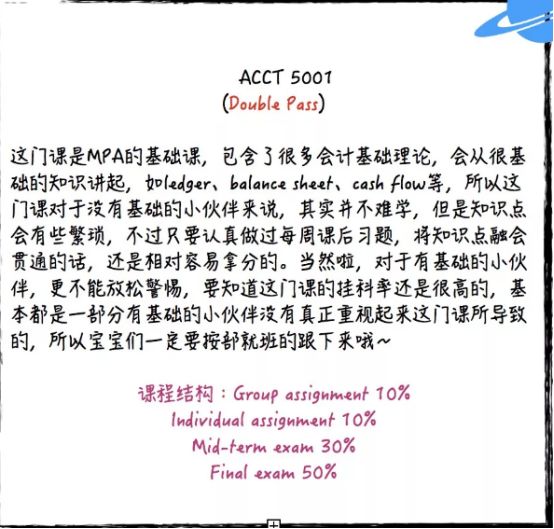 ACCT 5001
(Double Pass)
这门课是MPA的基础课，包含了很多会计基础理论，会从很基
础的知识讲起，如ledger、balance sheet、cash flow等，所以这
门课对于没有基础的小伙伴来说，其实并不难学，但是知识点
会有些繁琐，不过只要认真做过每周课后习题，将知识点融会
贯通的话，还是相对容易拿分的。当然啦，对于有基础的小伙
伴，更不能放松警惕，要知道这门课的挂科率还是很高的，基
本都是一部分有基础的小伙伴没有真正重视起来这门课所导致
的，所以宝宝们一定要按部就班的跟下来哦~
课程结构：Group assignment 10%
Individual assignment 10%
Mid-term exam 30%
Final exam 50%